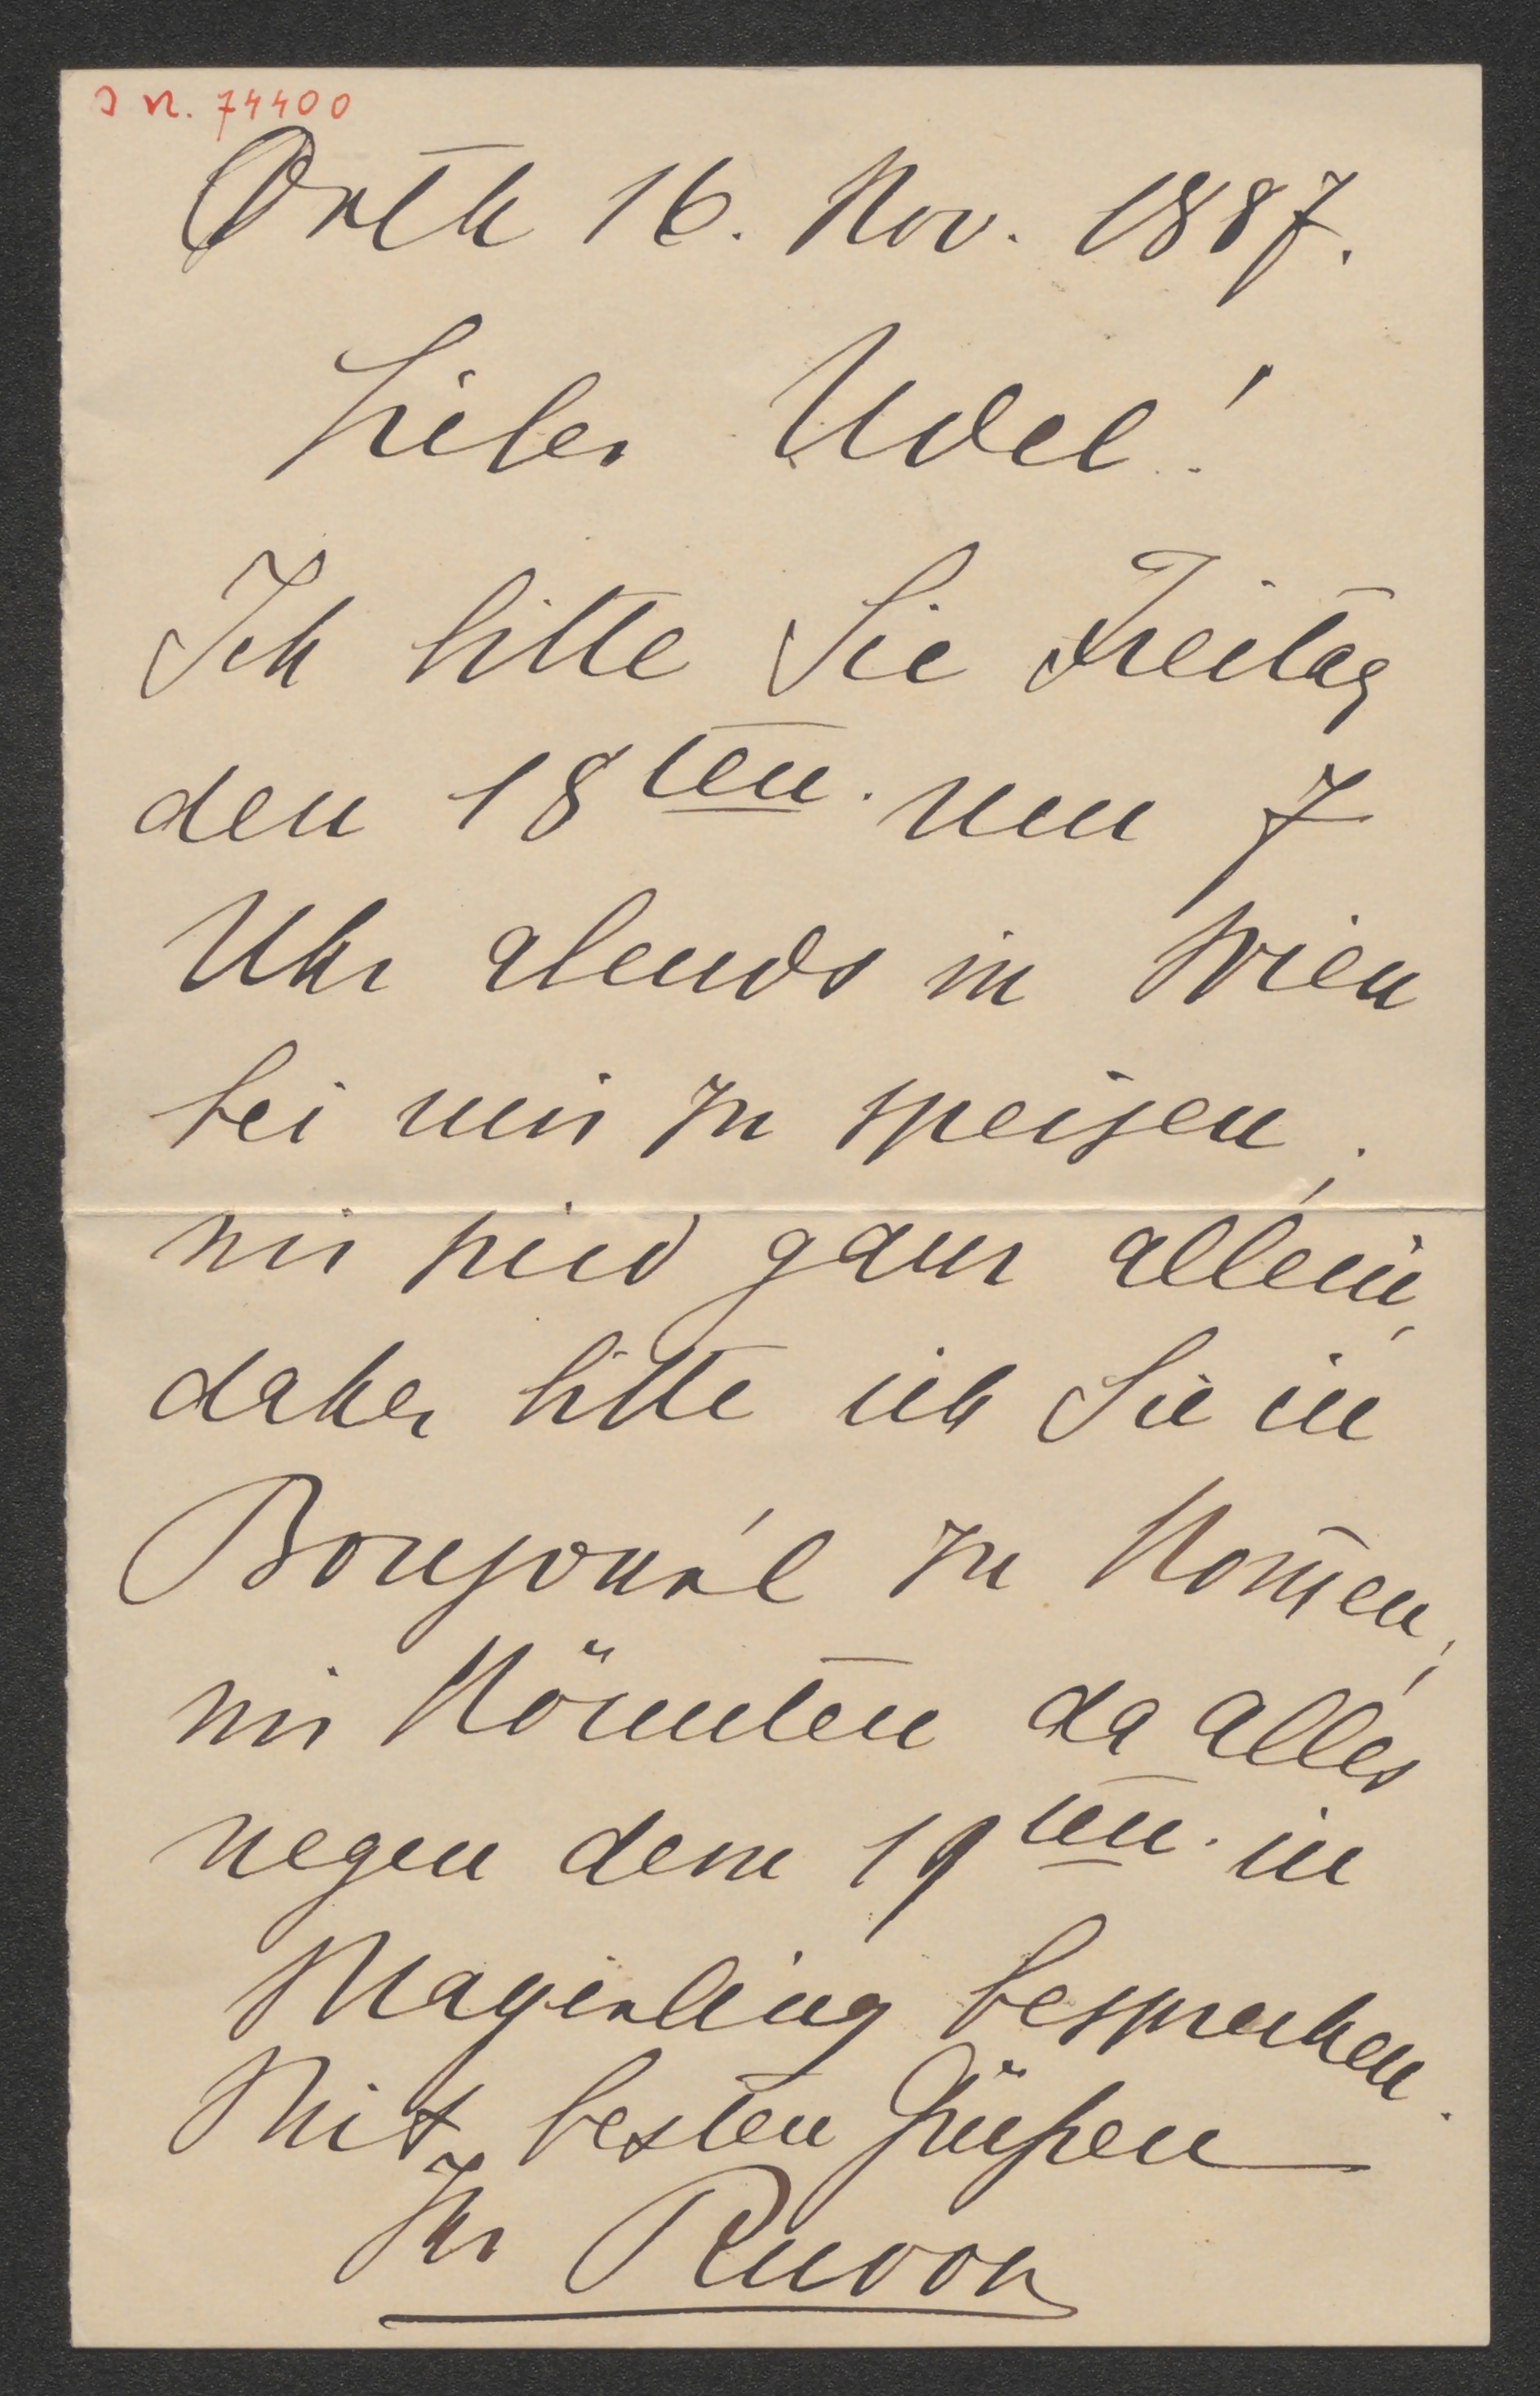 J N. 74400
Orth 16. Nov. 1887.
Lieber Udel!
Ich bitte Sie Freitag
den 18ten. um 7
Uhr abends in Wien
bei mir zu speisen;
wir sind ganz allein,
daher bitte ich Sie in
Bonjour'l zu kom̄en;
wir könnten da alles
wegen dem 19ten. in
Mayerling besprechen.
Mit besten Grüßen
Ihr Rudolf